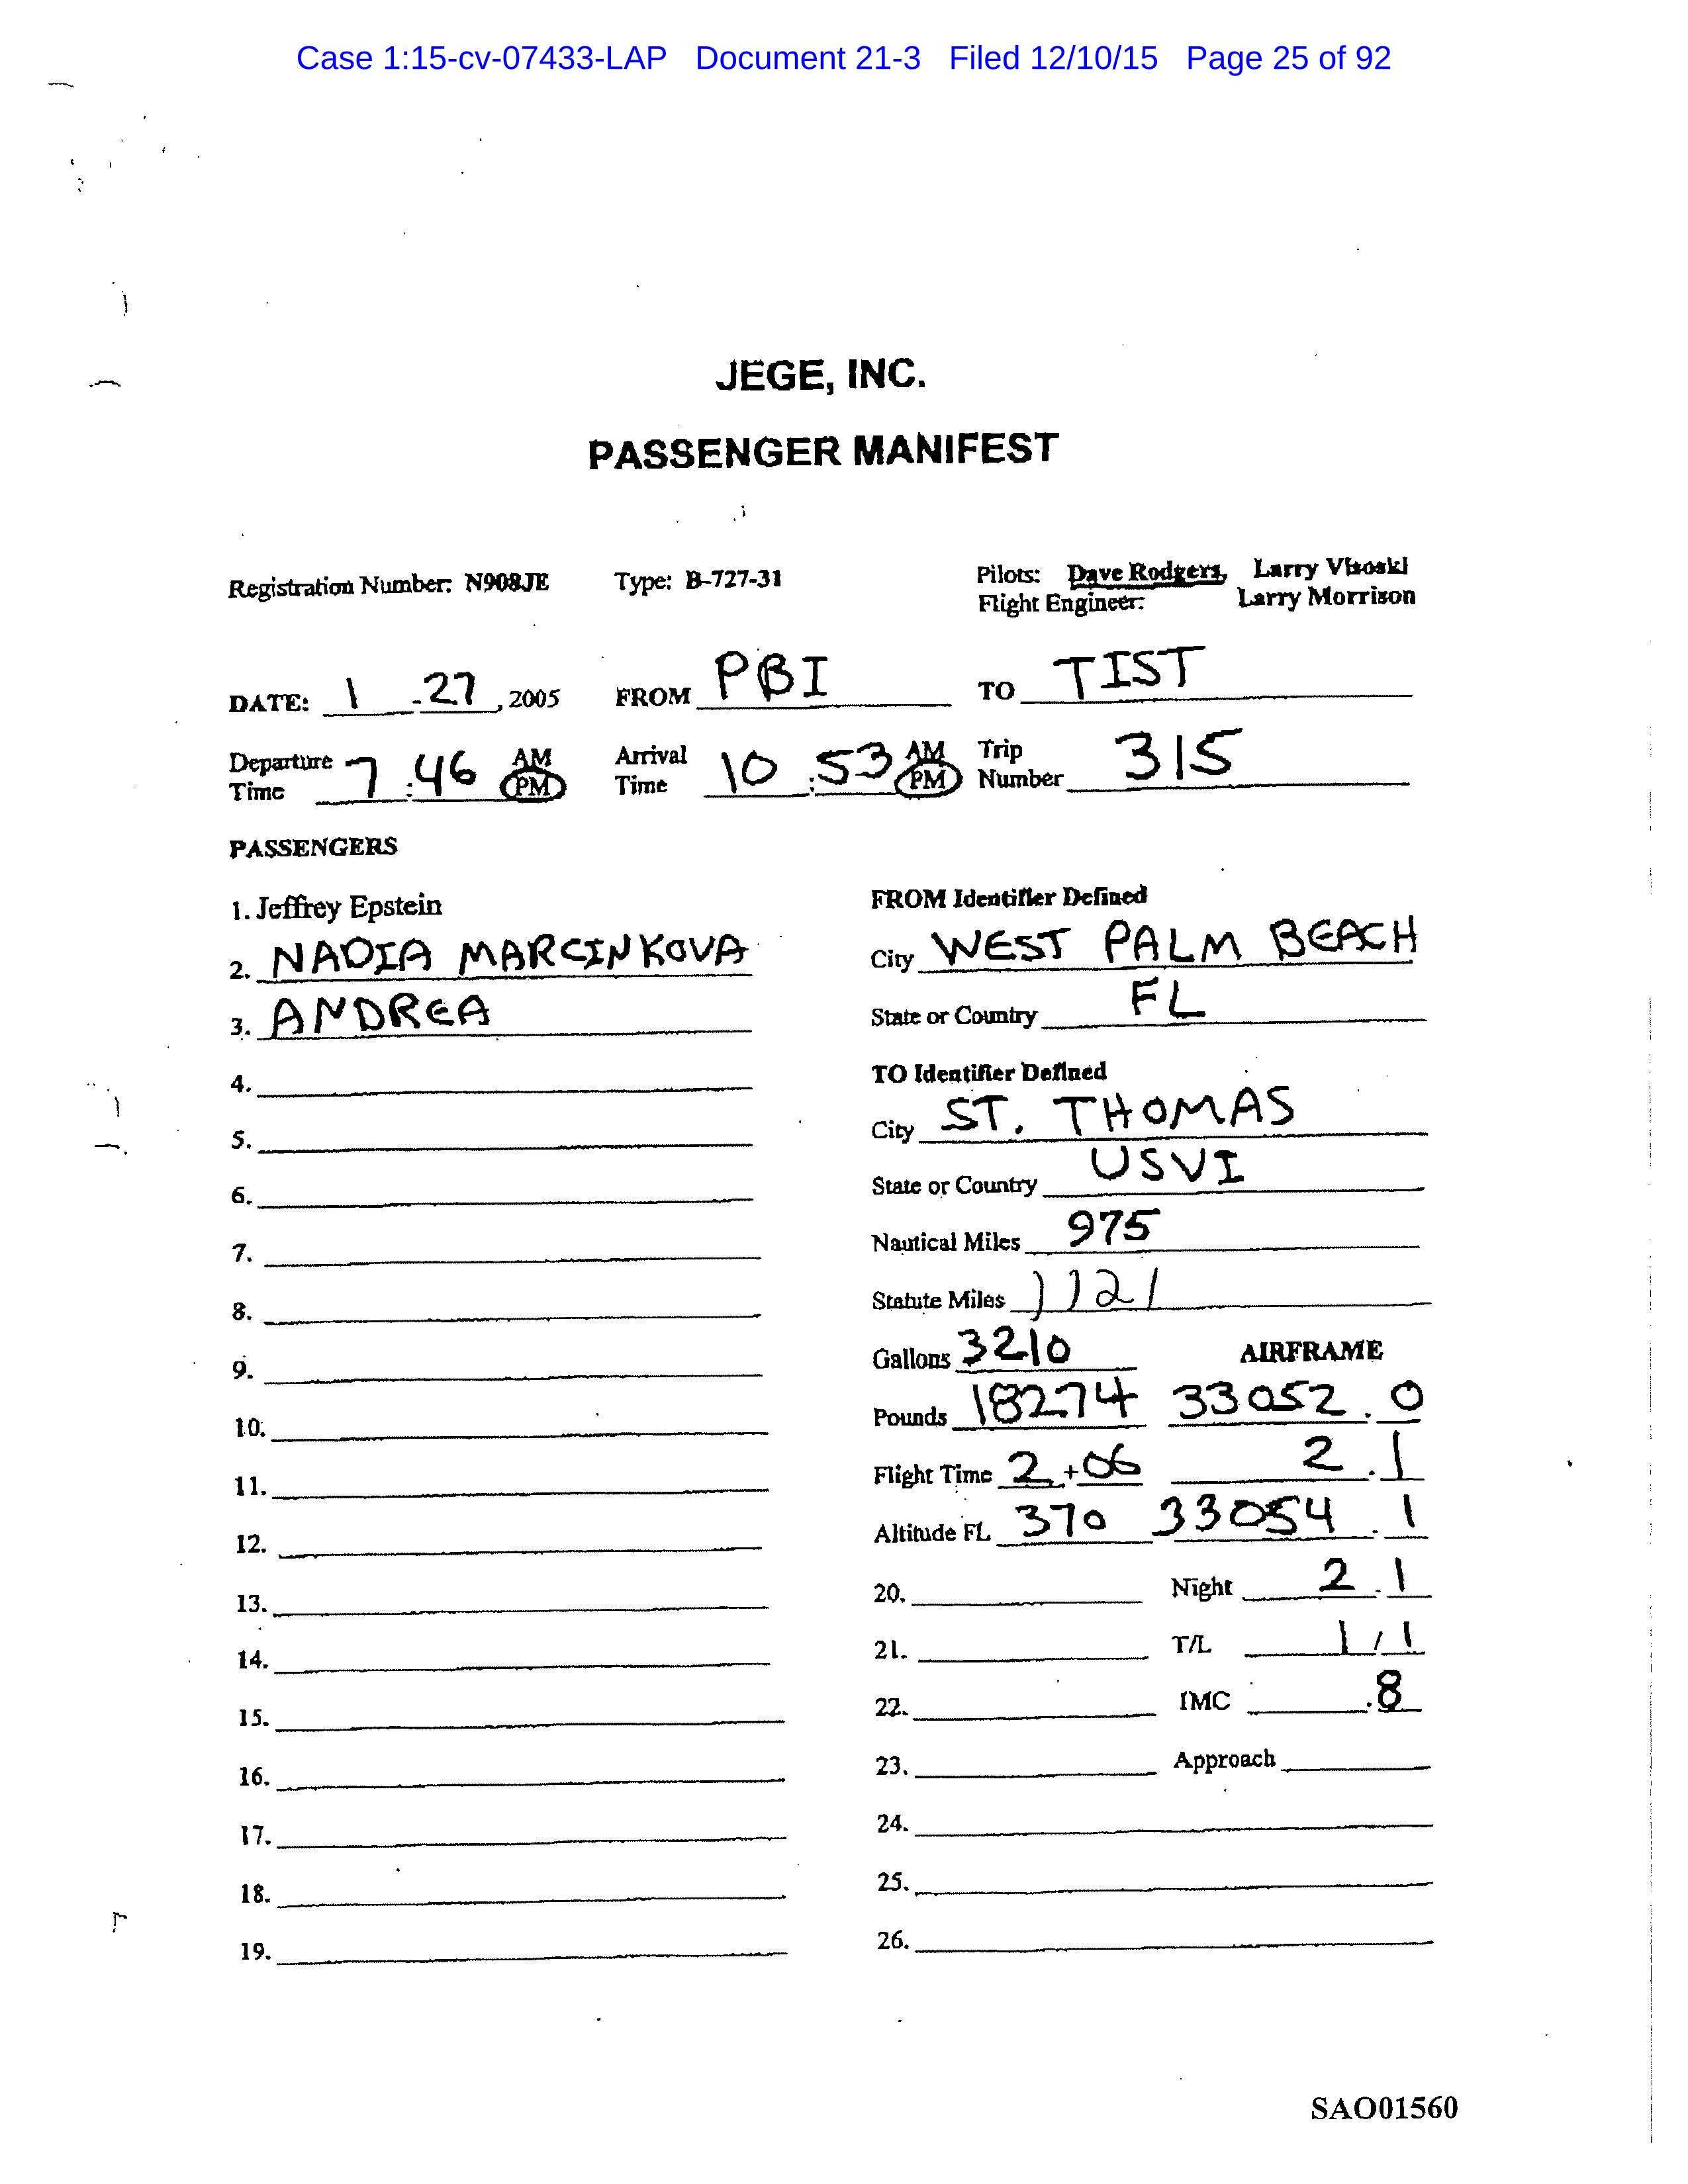 Case 1:15-cv-07433-LAP Document 21-3 Filed 12/10/15 Page 25 of 92
JEGE, INC.
PASSENGER MANIFEST
Registration Number: N908JE Type: B-727-31 Pilots: Dave Rodgers, Larry Visoski
Flight Engineer: Larry Morrison
DATE: 1 - 27, 2005 FROM PBI TO TIST
Departure Time 7:46 AM PM Arrival Time 10:53 AM PM Trip Number 315
PASSENGERS
1. Jeffrey Epstein
2. NADIA MARCINKOVA
3. ANDREA
4.
5.
6.
7.
8.
9.
10.
11.
12.
13.
14.
15.
16.
17.
18.
19.
FROM Identifier Defined
City WEST PALM BEACH
State or Country FL
TO Identifier Defined
City ST. THOMAS
State or Country USVI
Nautical Miles 975
Statute Miles 1121
Gallons 3210 AIRFRAME
Pounds 18274 33052.0
Flight Time 2+06 2.1
Altitude FL 370 33054.1
20. Night 2.1
21. T/L 1/1
22. IMC .8
23. Approach
24.
25.
26.
SAO01560